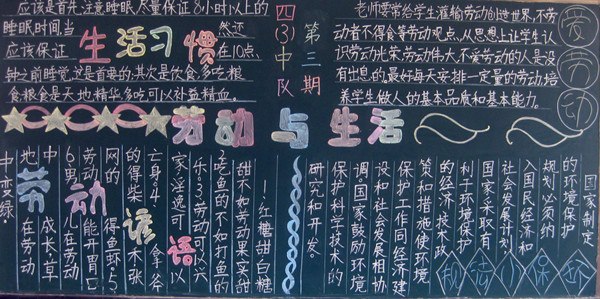 应该是首先注意睡眠,尽量保证8小时以上的
睡眠时间,当
然还
应该保证
在10点
生活习惯
钟之前睡觉,这是首要的.其次是饮食,多吃粮
食,粮食是天地精华,多吃可以补益精血。
四(3)中队
第三期
老师要常给学生灌输劳动创造世界,不劳
动者不得食等劳动观点,从思想上让学生认
识劳动光荣,劳动伟大,不爱劳动的人是没
有出息的,最好每天安排一定量的劳动,培
养学生做人的基本品质和基本能力。
爱劳动
劳动与生活
国家制定
的环境保护
规划必须纳
入国民经济和
社会发展计划
国家采取有
利于环境保护
的经济、技术政
策和措施,使环境
保护工作同经济建
设和社会发展相协
调国家鼓励环境
保护科学技术的
研究和开发。
规范小保
劳动谚语
1.红糖甜,白糖
甜,不如劳动果实甜
2.吃鱼的不如打鱼的
乐.3.劳动可以兴
家,淫逸可以
亡身.4.拿斧
的得柴禾,张
网的得鱼虾.5.
劳动能开胃口
6.男儿在劳动
中成长,草
地在劳动
中变绿.